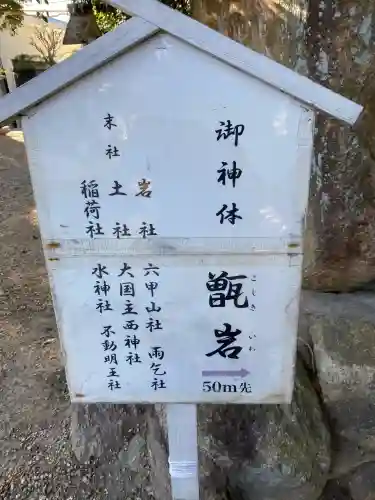 御神体
甑岩
こしき いわ
50m先
末社
岩社
土社
稲荷社
六甲山社
雨乞社
大国主西神社
不動明王社
水神社